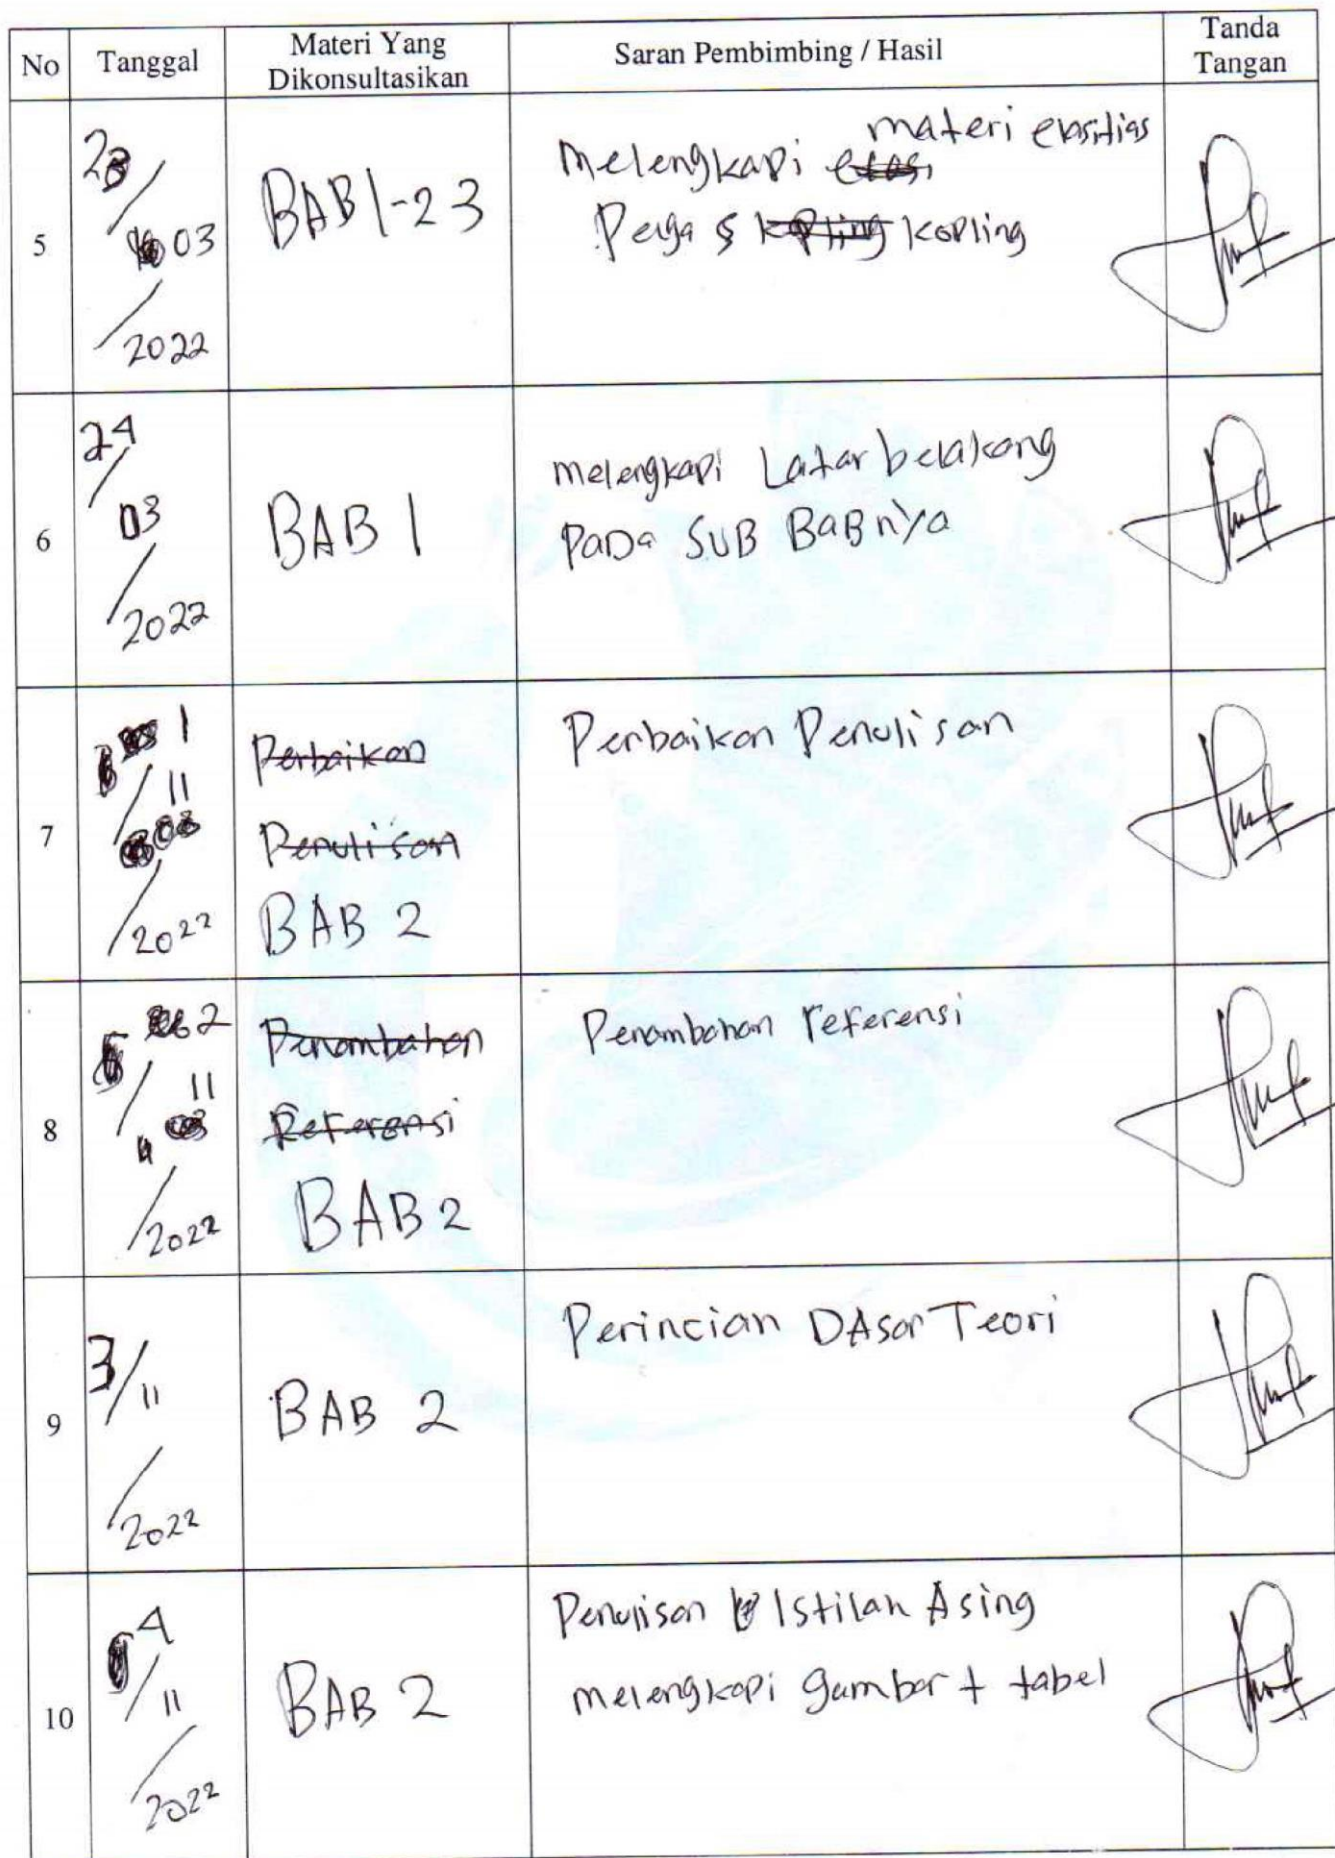 No Tanggal Materi Yang Dikonsultasikan Saran Pembimbing / Hasil Tanda Tangan
5
23/
03
/2022
BAB 1-2 3
melengkapi materi elasitias
Pegas kopling kopling
6
24/
03
/2022
BAB 1
melengkapi Latar belakang
PADa SUB BABnya
7
1
/11
03
/2022
Perbaikan
Penulisan
BAB 2
Perbaikan Penulisan
8
2
/11
03
/2022
Penambahan
Referensi
BAB 2
Penambahan referensi
9
3/11
/2022
BAB 2
Perincian DAsar Teori
10
4
/11
/2022
BAB 2
Penulisan Istilah Asing
melengkapi gambar + tabel